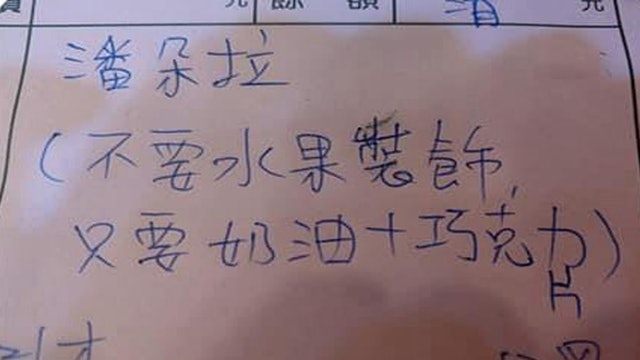 元 餘 額 元
潘朵拉
(不要水果裝飾,
只要奶油十巧克力)
片